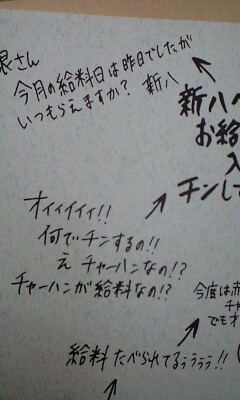 銀さん
今月の給料日は昨日でしたが
いつもらえますか? 新八
新八へ
お給
入
チンして
オィィィィィ!!
何でチンするの!!
え チャーハンなの!?
チャーハンが給料なの!?
今度は赤
チャ
でもオ
給料 たべられてるぅぅぅぅ!!